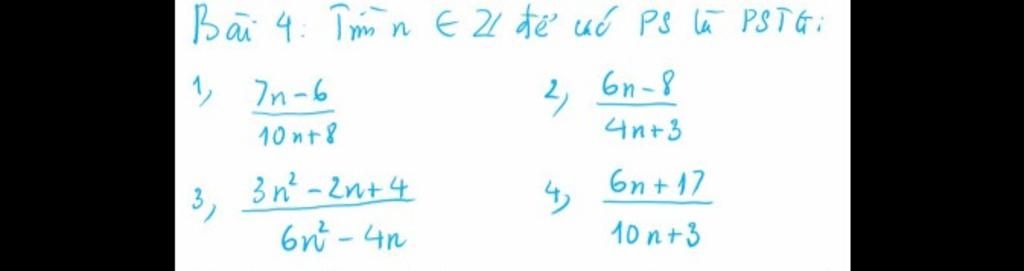 Bài 4: Tìm n ∈ Z để các PS là PSTG:
1, (7n - 6)/(10n + 8) 2, (6n - 8)/(4n + 3)
3, (3n² - 2n + 4)/(6n² - 4n) 4, (6n + 17)/(10n + 3)